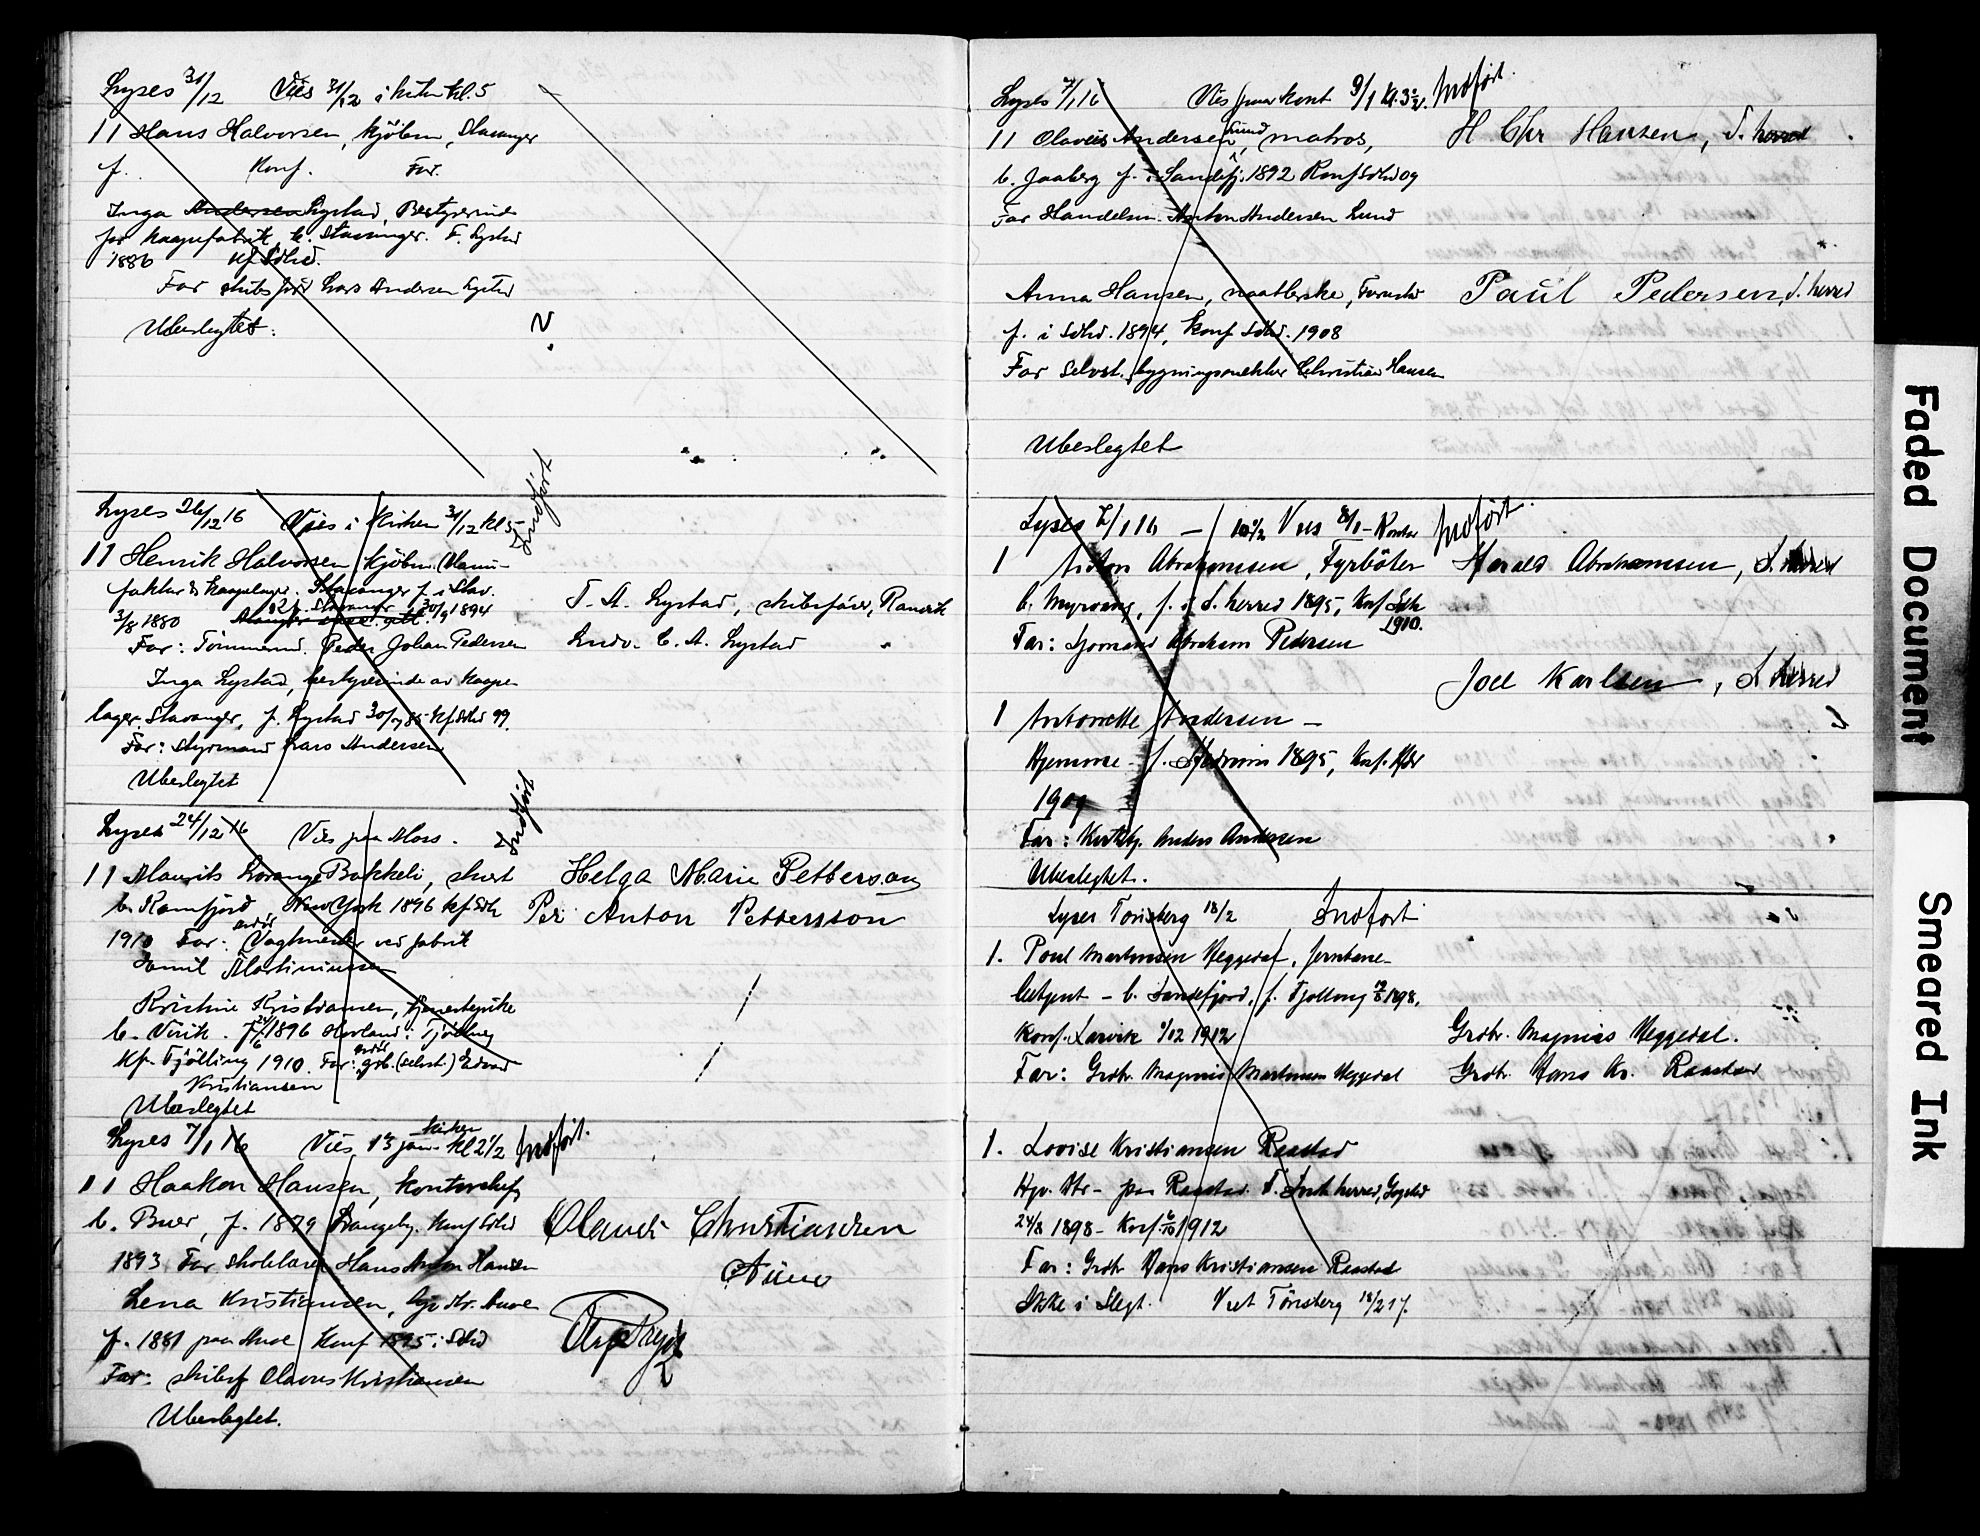 Lyses 31/12 Vies 31/12 i kirken kl. 5
1 1 Hans Halvorsen, kjöbm, Stavanger
f. Konf. Far.
Inga Andersen Lystad, Bestyrerinde
for kaapefabrik, b. Stavanger. F. Lystad
1886 kf Sdhrd.
Far skibsför Lars Andersen Lystad
Ubeslegtet.
Lyses 26/12 16 Vies i Kirken 31/12 kl 5
Indført
1 1 Henrik Halvorsen kjöbm. (Manu-
faktur & kaapelager. Stavanger f. i Stav.
3/8 1880 kf. Stavanger 30/9 1894
Far: Tömmermd. Peder Johan Pedersen
Inga Lystad, bestyrerinde av kaape-
lager. Stavanger, f. Lystad 30/9 85 kf Sdhd 99.
Far: Styrmand Lars Andersen
Ubeslegtet
T. A. Lystad, skibsfører, Ramvik
Ludv. E. A. Lystad "
Lyses 24/12 16 Vies paa Moss.
Indført
1 1 Maurits Lorange Bakkeli,
b. Ramfjord, New York 1896 kf Sdh
1910 Far: Vagtmester ved fabrik
Emil Martiniussen
Kristine Kristiansen, tjenestepike
b. Virik. f. 24/6 1896 Havland i Tjölling
kfr Tjölling 1910. Far: grb. (selvst.) Edvard
Kristiansen
Ubeslegtet
Helga Marie Petterson
Per Anton Pettersson
Lyses 7/1 16 Vies 13 jan. kirken kl 2 1/2
Indført.
1 1 Haakon Hansen, kontorchef,
b. Buer, f. 1879 Prangeby. Konf Sdhd
1893 Far skolelærer Hans Anton Hansen
Lena Kristiansen, Gjv dtr. Auve
f. 1881 paa Auve Konf 1895 i Sdhd
Far: skibsf Olavus Kristiansen
Ubeslegtet.
Olaus Christiansen
Auve
Lyses 7/1 16 Vies paa kont 9/1 kl. 3 1/2.
Indført.
1 1 Olavus Andersen Lund, matros,
b. Jaaberg f. i Sandefj. 1892 Konf Sdhd 09
Far Handelsm. Anton Andersen Lund
Anna Hansen, naatlerske, Furustad
f. i Sdhd. 1894, Konf Sdhd. 1908
Far Selvst. bygningssnekker Christian Hansen
Ubeslegtet
H Chr Hansen, S. herred
Paul Pedersen, S. herred
Lyses 7/1 16 – 10 1/2 Vies 8/1 – Kontor
Indført.
1 Anton Abrahamsen, Fyrböter
b. Myrvang, f. i S. herred 1895, Konf Sdh
1910.
Far: Sjömand Abraham Pedersen
1 Antonette Andersen –
Hjemme – f. Hedrum 1895, Konf. Hdr
1909
Far: Anders Andersen
Ubeslegtet.
Harald Abrahamsen, S. herred
Joel Karlsen, S herred
Lyses Tönsberg 18/2 Indfört
1. Poul Martinsen Heggedal, Jernbane-
betjent – b. Sandefjord, f. Tjølling 1898,
Konf. Larvik 1/12 1912
Far: Grdbr. Magnus Martinsen Heggedal
1. Lovise Kristiansen Raastad
Hjv. Dtr – paa Raastad. F. Sandeherred, Gogstad
24/8 1898 – Konf. 6/10 1912
Far: Grdbr Hans Kristiansen Raastad
Ikke i Slegt. Viet Tönsberg 18/2 17.
Grdbr. Magnus Heggedal.
Grdbr. Hans Kr. Raastad
Faded Document
Smeared Ink